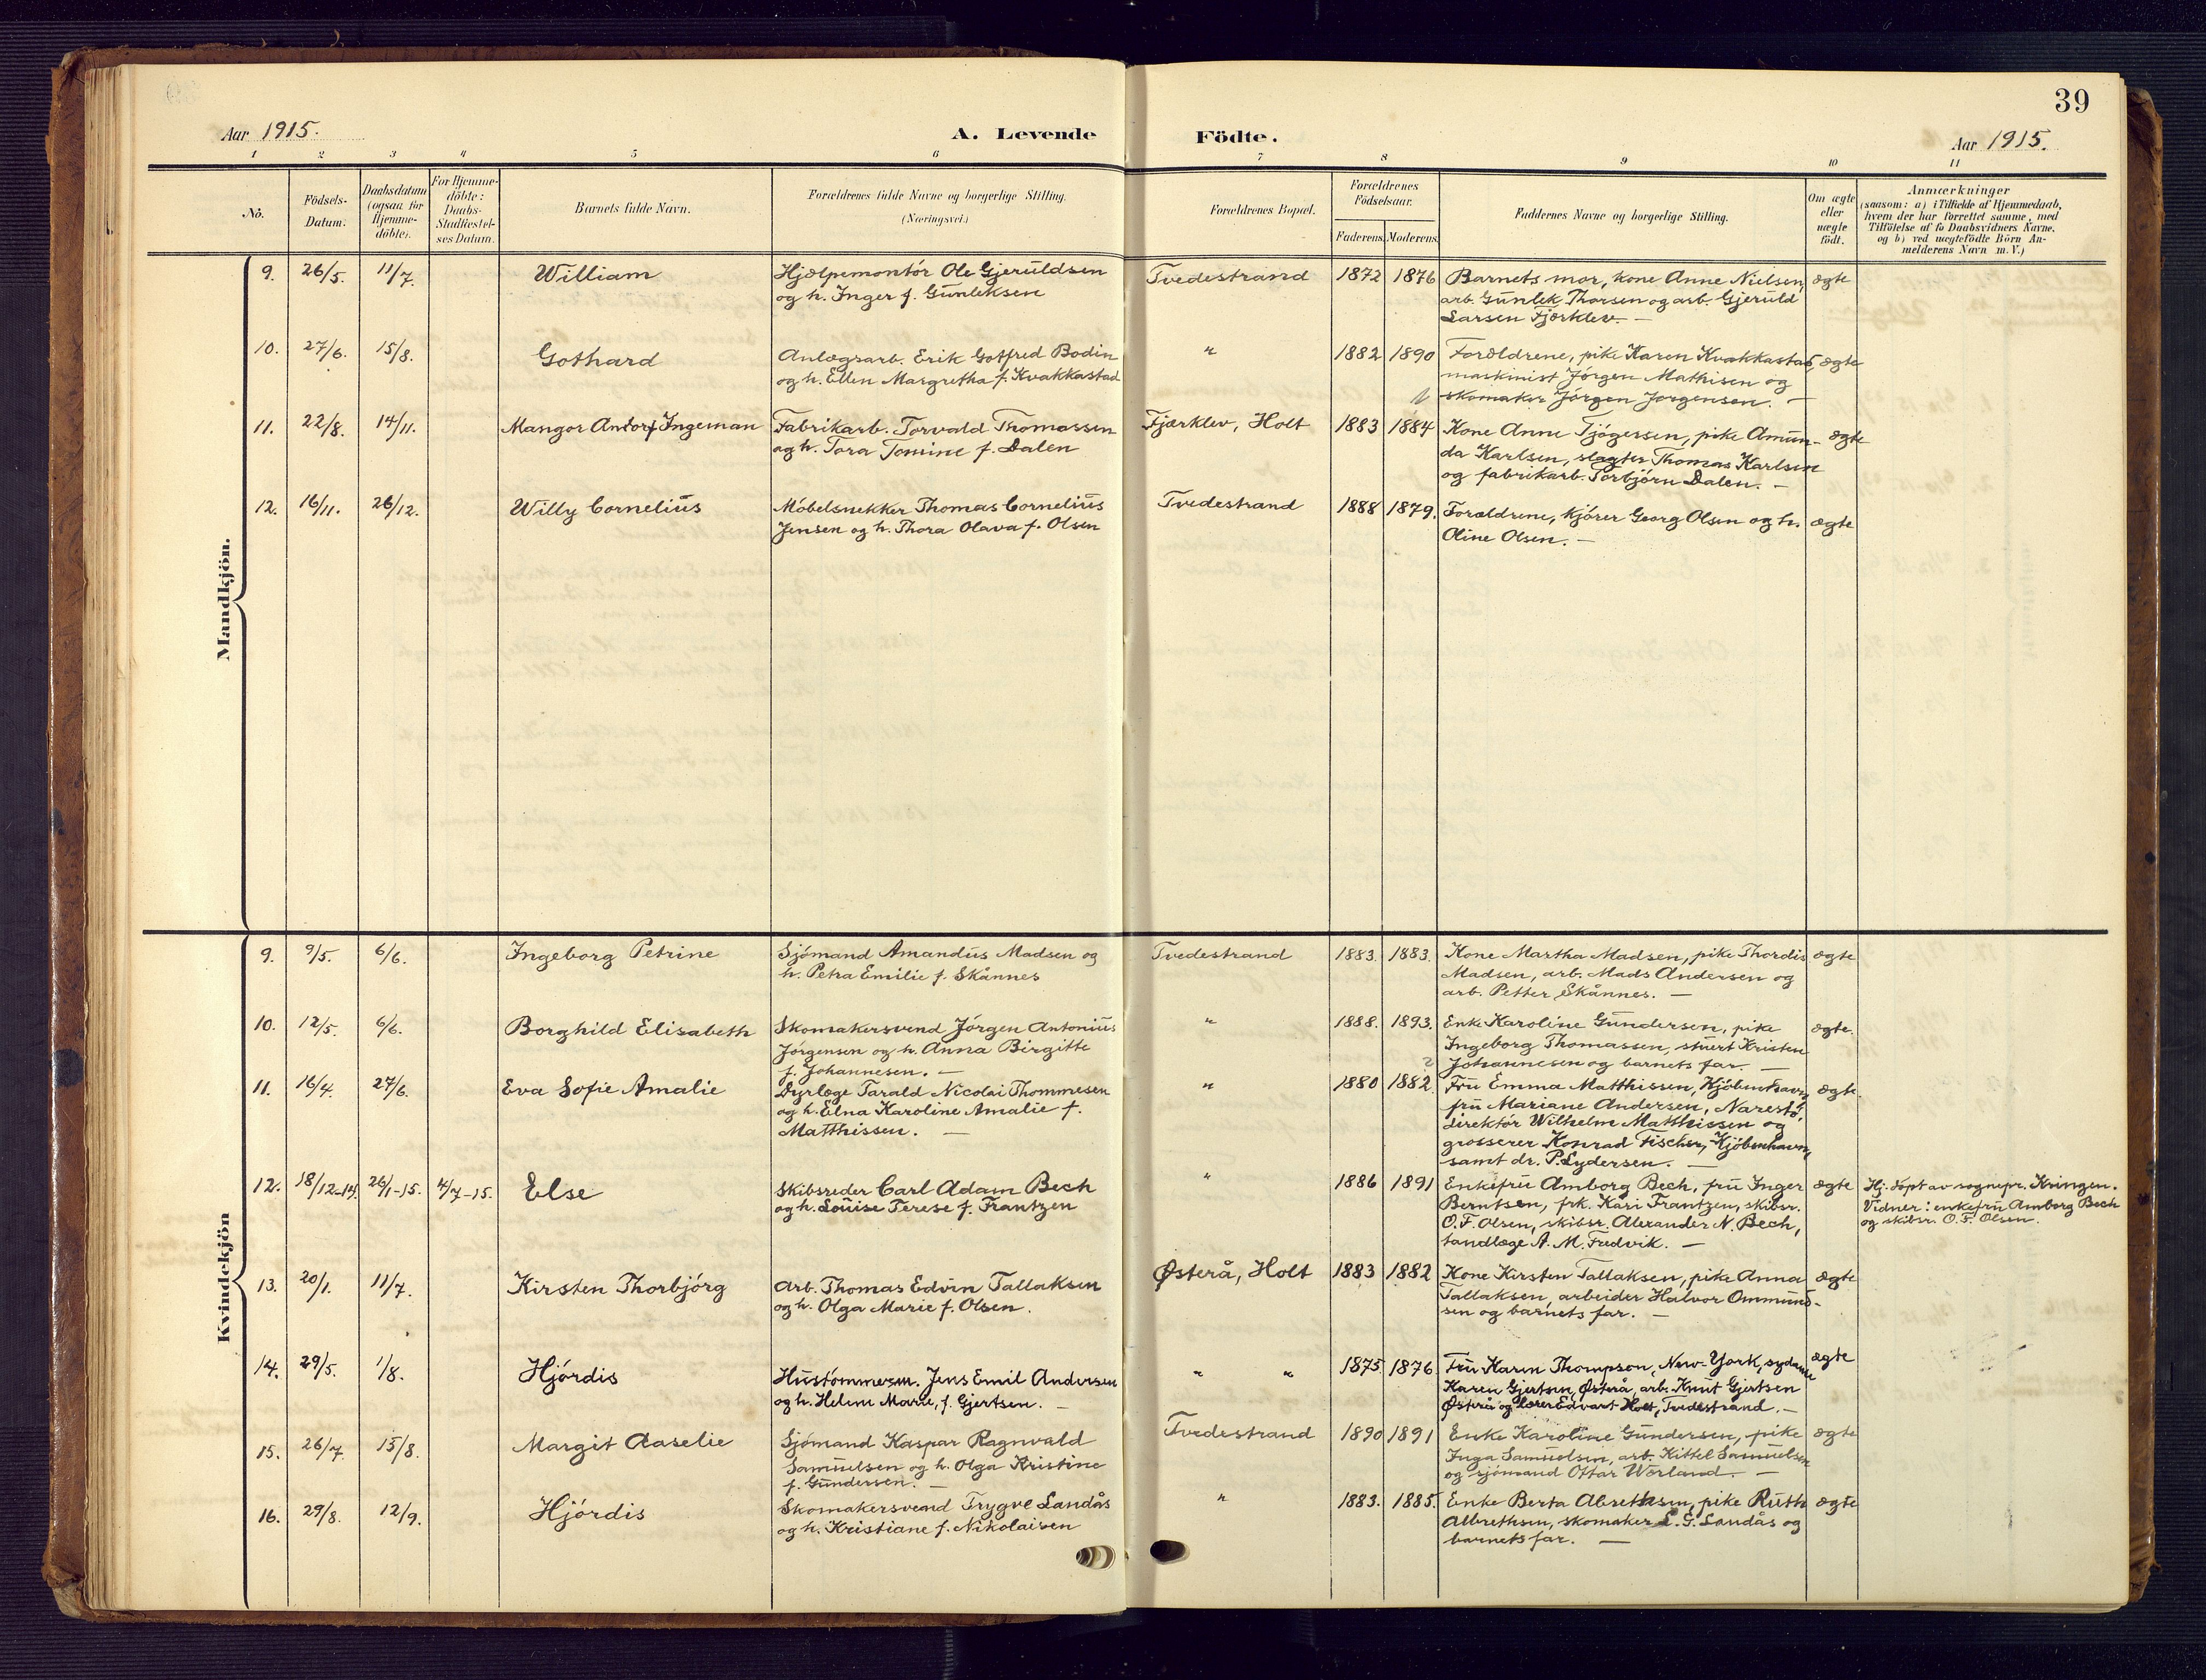 39
Aar 1915.
A. Levende Födte.
Aar 1915.
1 2 3 4 5 6 7 8 9 10 11
Nö.
Födsels-Datum.
Daabsdatum (ogsaa for Hjemme-döbte).
For Hjemme-döbte: Daabs-Stadfæstel-ses Datum.
Barnets fulde Navn.
Forældrenes fulde Navne og borgerlige Stilling. (Næringsvei.)
Forældrenes Bopæl.
Forældrenes Födselsaar.
Faderens. Moderens.
Faddernes Navne og borgerlige Stilling.
Om ægte eller uægte födt.
Anmærkninger
(saasom: a) i Tilfælde af Hjemmedaab,
hvem der har forrettet samme, med
Tilföielse af to Daabsvidners Navne,
og b) ved uægtefödte Börn An-
melderens Navn m. V.)
Mandkjön.
9. 26/5. 11/7. William
Hjælpemontör Ole Gjeruldsen
og h. Inger f. Gunleksen
Tvedestrand 1872 1876
Barnets mor, kone Anne Nielsen,
arb. Gunlek Thorsen og arb. Gjeruld
Larsen Fjærklev. —
ægte
10. 27/6. 15/8. Gothard
Anlægsarb. Erik Gotfred Bodin
og h. Ellen Margretha f. Kvakkastad
" 1882 1890
Forældrene, pike Karen Kvakkastad,
maskinist Jörgen Mathisen og
skomaker Jörgen Jorgensen. —
ægte
11. 22/8. 14/11. Mangor Andorf Ingeman
Fabrikarb. Torvald Thomassen
og h. Tora Tomine f. Dalen
Fjærklev, Holt 1883 1884
Kone Anne Tjögersen, pike Amun-
da Karlsen, slagter Thomas Karlsen
og fabrikarb. Torbjörn Dalen. —
ægte
12. 16/11. 26/12. Willy Cornelius
Möbelsnekker Thomas Cornelius
Jensen og h. Thora Olava f. Olsen
Tvedestrand 1888 1879.
Forældrene, kjörer Georg Olsen og h.
Oline Olsen. —
ægte
Kvindekjön
9. 9/5. 6/6. Ingeborg Petrine
Sjömand Amandus Madsen og
h. Petra Emilie f. Skånnes
Tvedestrand 1883. 1883.
Kone Martha Madsen, pike Thordis
Madsen, arb. Mads Andersen og
arb. Petter Skånnes. —
ægte
10. 12/5. 6/6. Borghild Elisabeth
Skomakersvend Jörgen Antonius
Jörgensen og h. Anna Birgitte
f. Johannesen. —
" 1888. 1893.
Enke Karoline Gundersen, pike
Ingeborg Thomassen, stuert Kristen
Johannesen og barnets far. —
ægte.
11. 16/4. 27/6. Eva Sofie Amalie
Dyrlæge Tarald Nicolai Thommesen
og h. Elna Karoline Amalie f.
Matthissen. —
" 1880 1882
Fru Emma Matthissen, Kjöbenhavn,
fru Mariane Andersen, Narestö,
direktör Wilhelm Matthissen og
grosserer Konrad Fischer, Kjöbenhavn,
samt dr. P. Lydersen. —
ægte.
12. 18/12-14. 26/1-15. 4/7-15. Else
Skibsreder Carl Adam Bech
og h. Louise Terese f. Frantzen
" 1886 1891
Enkefru Amborg Bech, fru Inger
Berntsen, frk. Kari Frantzen, skibsr.
O. F. Olsen, skibsr. Alexander N. Bech,
tandlæge A. M. Fredvik. —
ægte
Hj. döpt av sognepr. Kringen.
Vidner: enkefru Amborg Bech
og skibsr. O. F. Olsen.
13. 20/1. 11/7. Kirsten Thorbjörg
Arb. Thomas Edvin Tallaksen
og h. Olga Marie f. Olsen.
Østerå, Holt 1883 1882
Kone Kirsten Tallaksen, pike Anna
Tallaksen, arbeider Halvor Ommund-
sen og barnets far. —
ægte
14. 29/5. 1/8. Hjördis
Hustömmerm. Jens Emil Andersen
og h. Helene Marie, f. Gjertsen. —
" " 1875 1876
Fru Karen Thompson, New-York, sydame
Karen Gjertsen, Østerå, arb. Knut Gjertsen
Østerå og lærer Edvart Holt, Tvedestrand. —
ægte
15. 26/7. 15/8. Margit Aaselie
Sjömand Kaspar Ragnvald
Samuelsen og h. Olga Kristine
f. Gundersen. —
Tvedestrand 1890 1891
Enke Karoline Gundersen, pike
Inga Samuelsen, arb. Kittel Samuelsen
og sjömand Ottar Werland. —
ægte
16. 29/8. 12/9. Hjördis
Skomakersvend Trygve Landås
og h. Kristiane f. Nikolaisen
" 1883. 1885.
Enke Berta Abrethsen, pike Ruth
Albrethsen, skomaker L. G. Landås og
barnets far. —
ægte